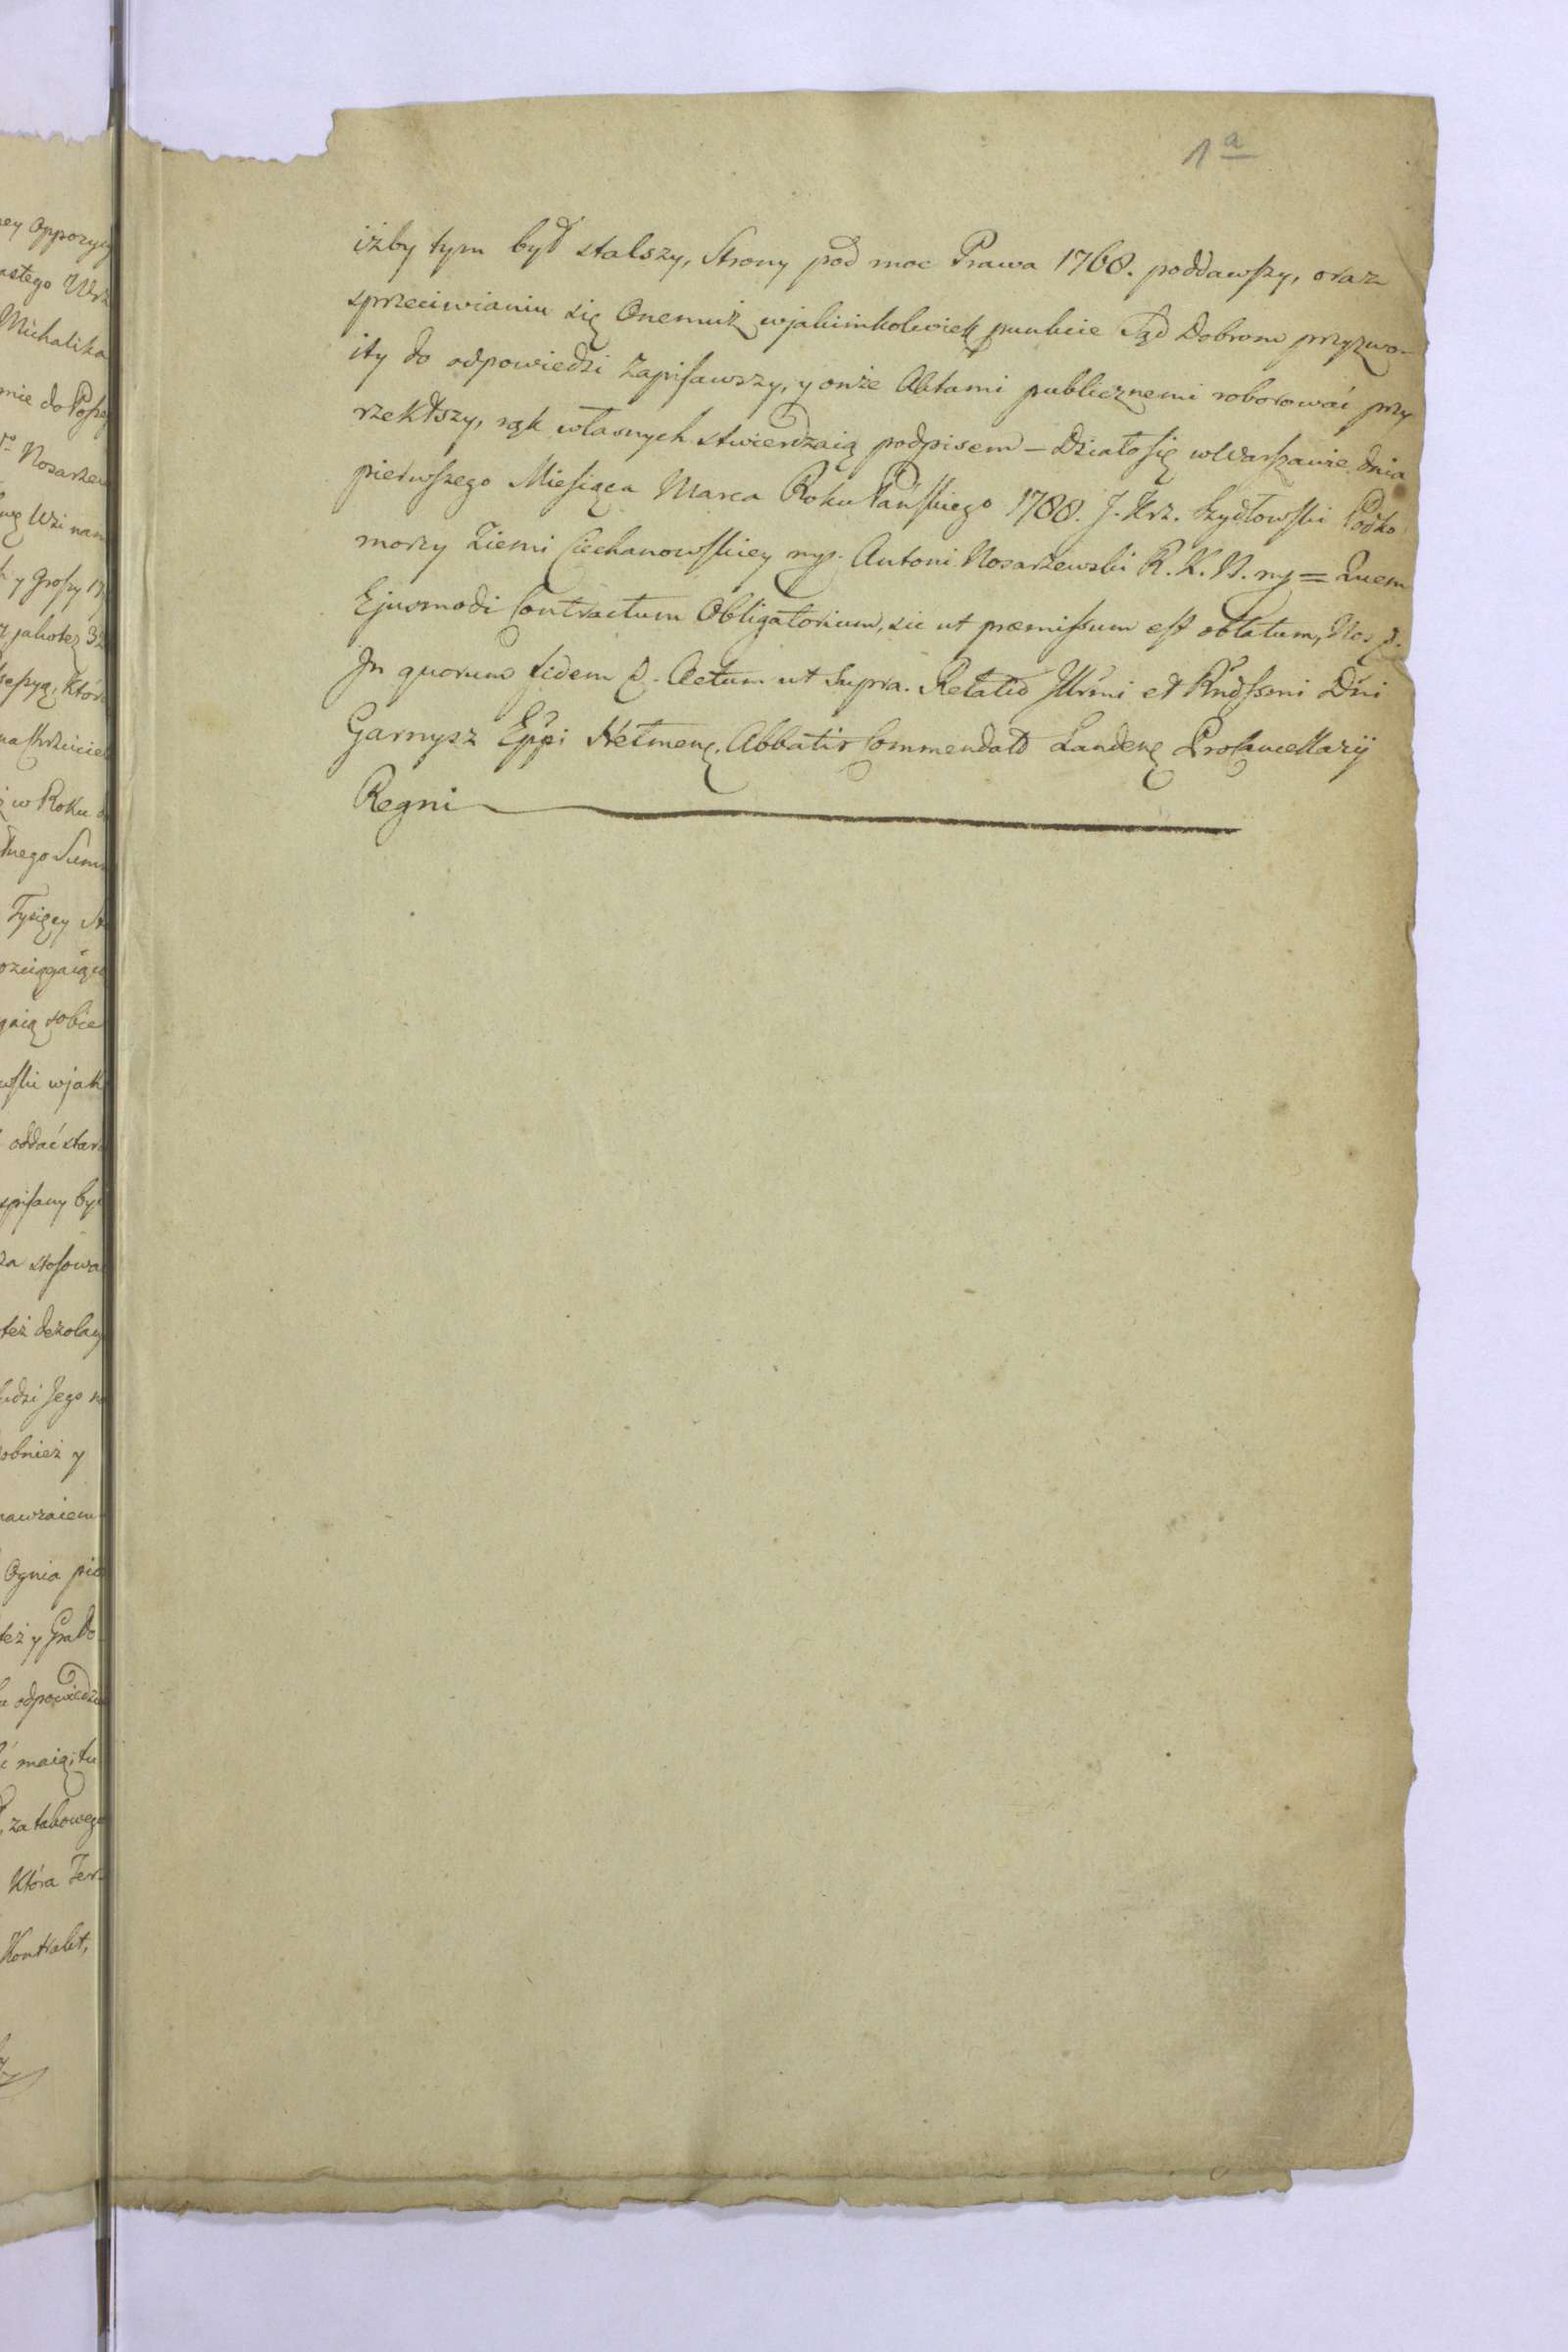 1a
iżby tym był stalszy, Strony pod moc Prawa 1768. poddawszy, oraz
sprzeciwianiu się Onemuż wjakimkolwiek punkcie Sąd Dobrom przyzwo-
ity do odpowiedzi Zapisawszy, y onże Aktami publicznemi roborować przy
rzekłszy, rąk własnych stwierdzaią podpisem – Działo się w Warszawie dnia
pierwszego Miesiąca Marca Roku Pańskiego 1788. J. Krz. Szydłowski Podko
morzy Ziemi Ciechanowskiey mp. Antoni Nosarzewski R. K. N. mp = Quem
Ejusmodi Contractum Obligatorium, sic ut præmissum est oblatum, Nos p.
In quorum fidem p. Actum ut Supra. Relatio Illrmi et Rndssmi Dni
Garnysz Eppi Hełmenę. Abbatis Commendato Landenę ProCancellarij
Regni
ney Oppozycy
astego Wrz
Michalika
mie do Posse
Nosarzew
Wsi nam
y Groszy 17
jakotez 32
sessyą, Któr
w Roku
nego Summ
Tysięcy
gaią sobie
wski wjak
oddać star
spisany by
za stosowa
też dezolacy
ludzi Jego
obnież y
nawzaiem
Ognia pio
też y Grado
odpowiedzi
maią, tu
za takowego
Która Ter
Kontrakt,